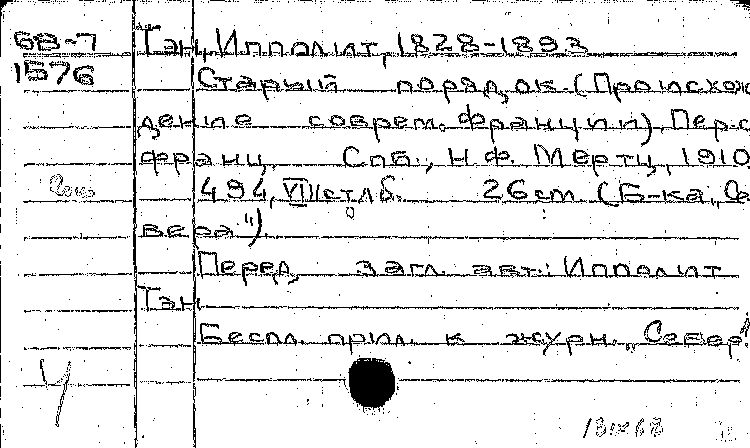 68-7 Тэн, Ипполит, 1828-1893
1576 Старый порядок. (Происхож
дение соврем. Франции). Пер. с
франц. Спб., Н.Ф. Мертц, 1910.
494, VI стлб. 26 cm. (Б-ка „Се
вера").
Перед загл. авт.: Ипполит
Тэн
Беспл. прил. к журн. „Север"